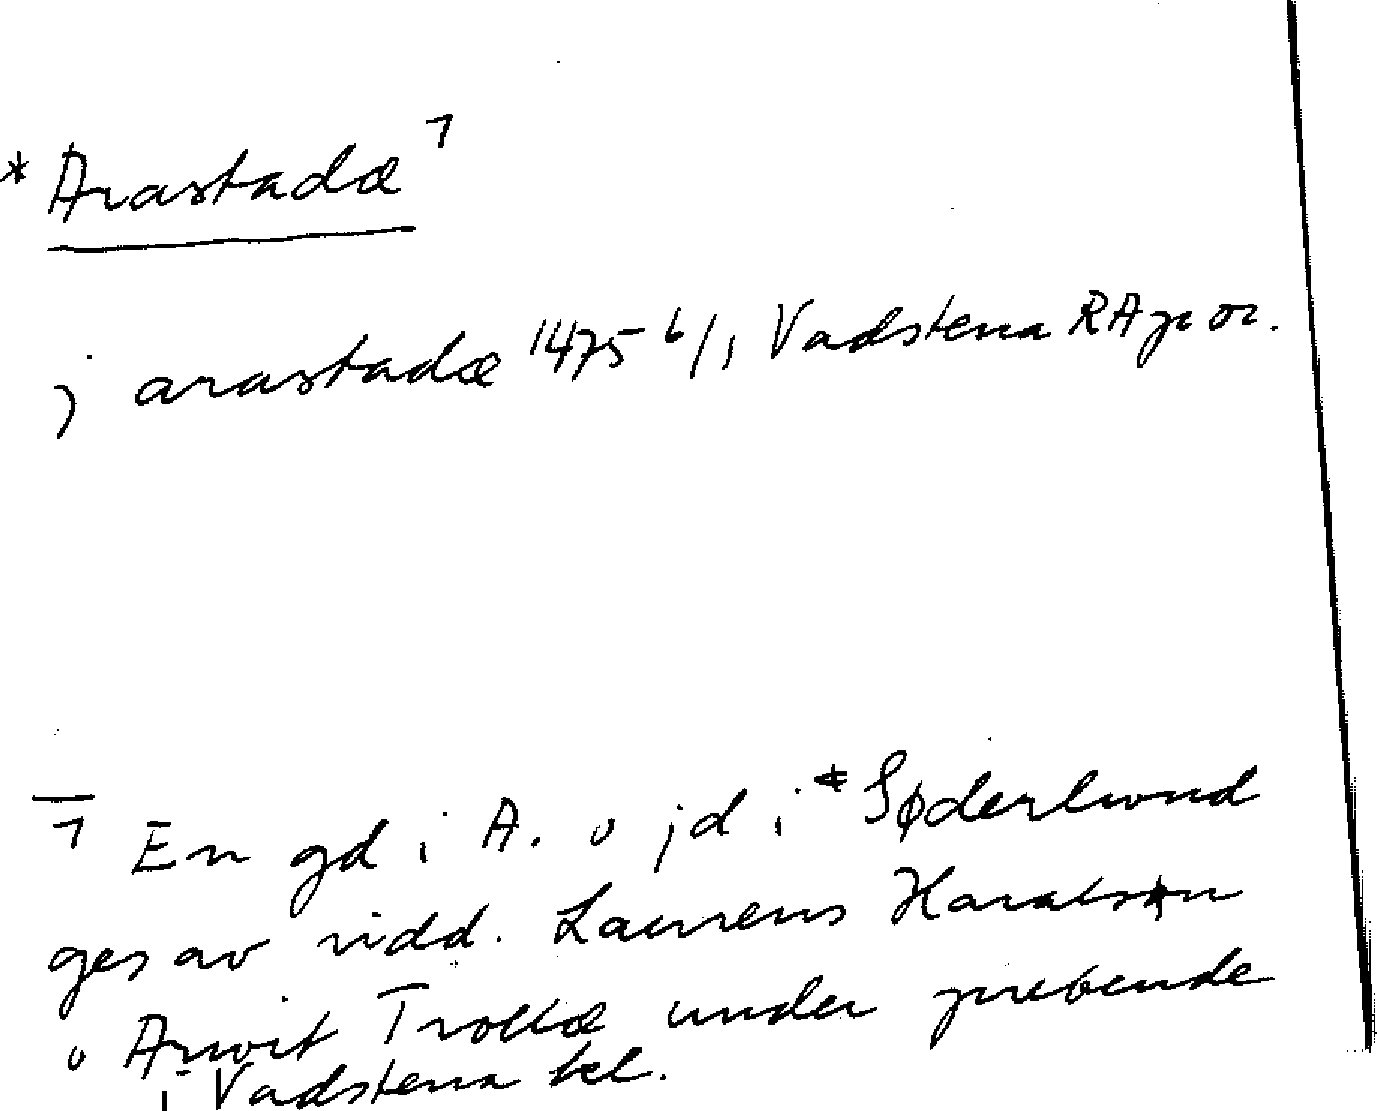 *Arastadæ ¬
j arastadæ 1475 6/1 Vadstena RAp or.
¬ En gd i A. o jd i *Søderlwnd
ges av ridd. Laurens Haralsson
o Arwit Trollæ under prebende
i Vadstena kl.